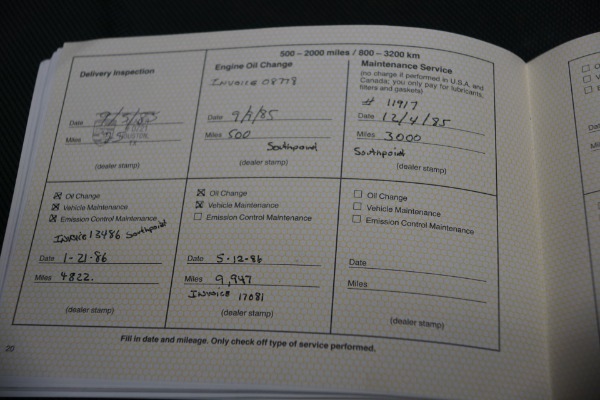 500 – 2000 miles / 800 – 3200 km
Delivery Inspection
Date
Miles
(dealer stamp)
Engine Oil Change
Invoice 08778
Date 9/9/85
Miles 500
Southpoint
(dealer stamp)
Maintenance Service
(no charge if performed in U.S.A. and
Canada; you only pay for lubricants,
filters and gaskets)
# 11917
Date 12/4/85
Miles 3000
Southpoint
(dealer stamp)
Oil Change
Vehicle Maintenance
Emission Control Maintenance
Invoice 13486 Southpoint
Date 1-21-86
Miles 4822.
(dealer stamp)
Oil Change
Vehicle Maintenance
Emission Control Maintenance
Date 5-12-86
Miles 9,947
Invoice 17081
(dealer stamp)
Oil Change
Vehicle Maintenance
Emission Control Maintenance
Date
Miles
(dealer stamp)
Fill in date and mileage. Only check off type of service performed.
20